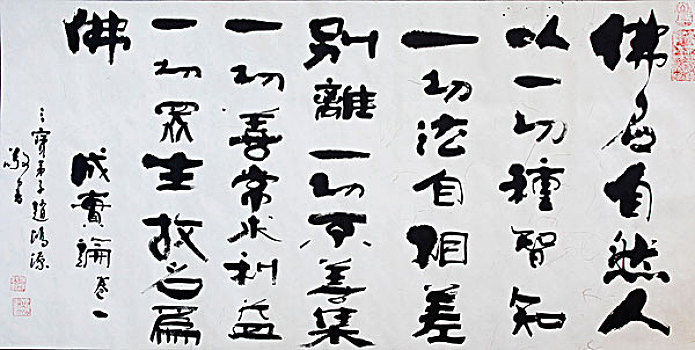 佛為自然人
以一切種智知
一切法自相差
別離一切不善集
一切善常求利益
一切眾生故名為
佛
成實論卷一
三寶弟子趙鴻源
敬書